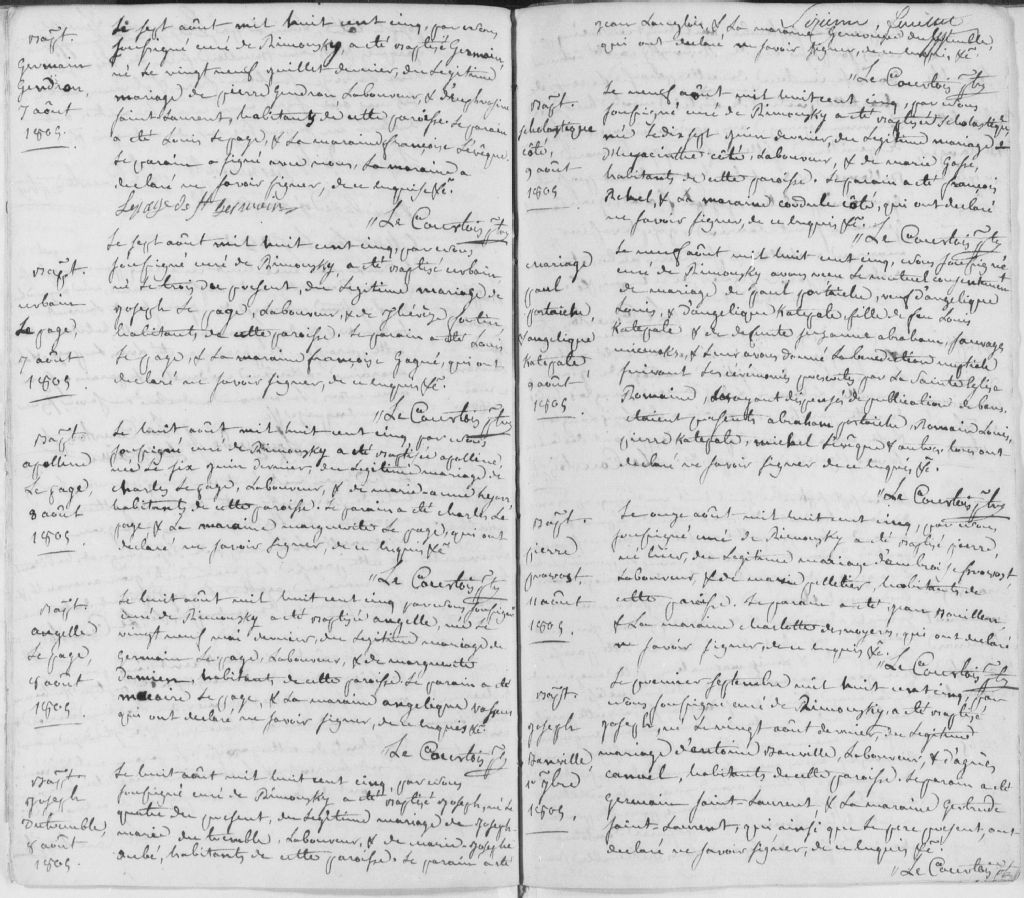 Bapt.
Germain
Gendron,
7 août
1805.
Le sept août mil huit cent cinq, par nous
soussigné curé de Rimousky, a été baptisé Germain,
né le vingt neuf juillet dernier, du légitime
mariage de pierre Gendron Laboureur, & d'euphrosine
saint Laurent, habitants de cette paroisse. Le parain
a été Louis Le page, & La maraine françoise Lévêque.
Le parain a signé avec nous, La maraine a
declaré ne savoir signer, de ce enquis &c.
Lepage de St Germain
"Le Courtois ptre
Bapt.
urbain
Le page,
7 août
1805
Le sept août mil huit cent cinq, par nous
soussigné curé de Rimousky, a été baptisé urbain
né le trois du present, du Légitime mariage de
joseph Le page, Laboureur, & de thérèse fortin,
habitants de cette paroisse. Le parain a été Louis
Le page, & La maraine françoise Gagné, qui ont
declaré ne savoir signer, de ce enquis &c.
"Le Courtois ptre
Bapt.
apolline
Le page,
8 août
1805
Le huit août mil huit cent cinq, par nous
soussigné curé de Rimousky a été baptisée apolline,
née le six juin dernier, du Légitime mariage de
charles Le page, Laboureur, & de marie anne
habitants de cette paroisse. Le parain a été charles Le
page & La maraine marguerite Le page, qui ont
declaré ne savoir signer, de ce enquis &c.
"Le Courtois ptre
Bapt.
angelle
Le page,
8 août
1805.
Le huit août mil huit cent cinq par nous soussigné
curé de Rimousky a été baptisée angelle, née le
vingt neuf mai dernier, du Légitime mariage de
Germain Le page, Laboureur, & de marguerite
Damien, habitants de cette paroisse. Le parain a été
macaire Le page, & La maraine angelique
qui ont declaré ne savoir signer, de ce enquis &c.
Le Courtois ptre
Bapt.
joseph
Dutremble,
8 août
1805.
Le huit août mil huit cent cinq, par nous
soussigné curé de Rimousky a été baptisé joseph, né le
quatre du present, du Légitime mariage de joseph
marie du tremble, Laboureur, & de marie josephe
dubé, habitants de cette paroisse. Le parain a été
jean Langlois, & La maraine Geneviève
qui ont declaré ne savoir signer, de ce enquis, &c.
"Le Courtois ptre
Bapt.
scholastique
côté,
9 août
1805
Le neuf août mil huit cent cinq, par nous
soussigné curé de Rimousky a été baptisée scholastique
née le dix sept juin dernier, du Légitime mariage de
d'hyacinthe côté, Laboureur, & de marie Gasse,
habitants de cette paroisse. Le parain a été françois
Michel, & La maraine côté, qui ont declaré
ne savoir signer, de ce enquis &c.
"Le Courtois ptre
mariage
paul
portaiche,
& angelique
Katepale
9 août
1805.
Le neuf août mil huit cent cinq, nous soussigné
curé de Rimousky avons reçu Le mutuel consentement
de mariage de paul portaiche, veuf d'angelique
Louis, & d'angelique Katepale, fille de feu Louis
Katepale & de defunte suzanne abraham, sauvages
micmaks, & Leur avons donné La benediction nuptiale
suivant Les cérémonies prescrites par La sainte Eglise
Romaine, Les ayant dispensés de publication de bans.
étoient présents abraham portaiche, Romain Louis,
pierre Katepale, michel Lévêque & autres, tous ont
declaré ne savoir signer de ce enquis, &c.
"Le Courtois ptre
Bapt.
pierre
provost
11 août
1805.
Le onze août mil huit cent cinq, par nous
soussigné curé de Rimousky a été baptisé pierre,
né hier, du Légitime mariage d'ambroise provost,
Laboureur, & de marie pelletier habitants de
cette paroisse. Le parain a été jean Bouillon
& La maraine charlotte desroyers, qui ont declaré
ne savoir signer, de ce enquis, &c.
"Le Courtois ptre
Bapt.
joseph
Banville,
1er 7bre
1805
Le premier septembre mil huit cent cinq, par
nous soussigné curé de Rimousky, a été baptisé
joseph, né Le vingt août dernier, du Légitime
mariage d'antoine Banville, Laboureur, & d'agnès
canuel, habitants de cette paroisse. Le parain a été
Germain saint-Laurent, & La maraine Gertrude
saint-Laurent, qui ainsi que Le père present, ont
declaré ne savoir signer, de ce enquis &c.
"Le Courtois ptre